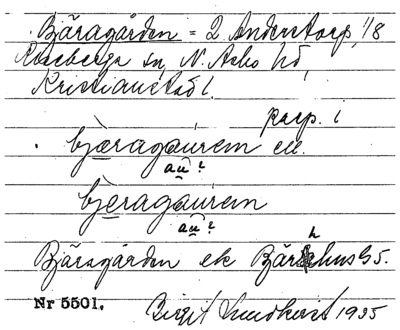 Bjäragården = 2 Anderstorp 1/8
Riseberga sn, N. Åsbo hd,
Kristianstad l.
parp. i
bjæragaurem ell.
au ?
bjeragaurem
au ?
Bjäragården ek Bjärahus b 5.
Nr 5501. Birgit Lundkvist 1935